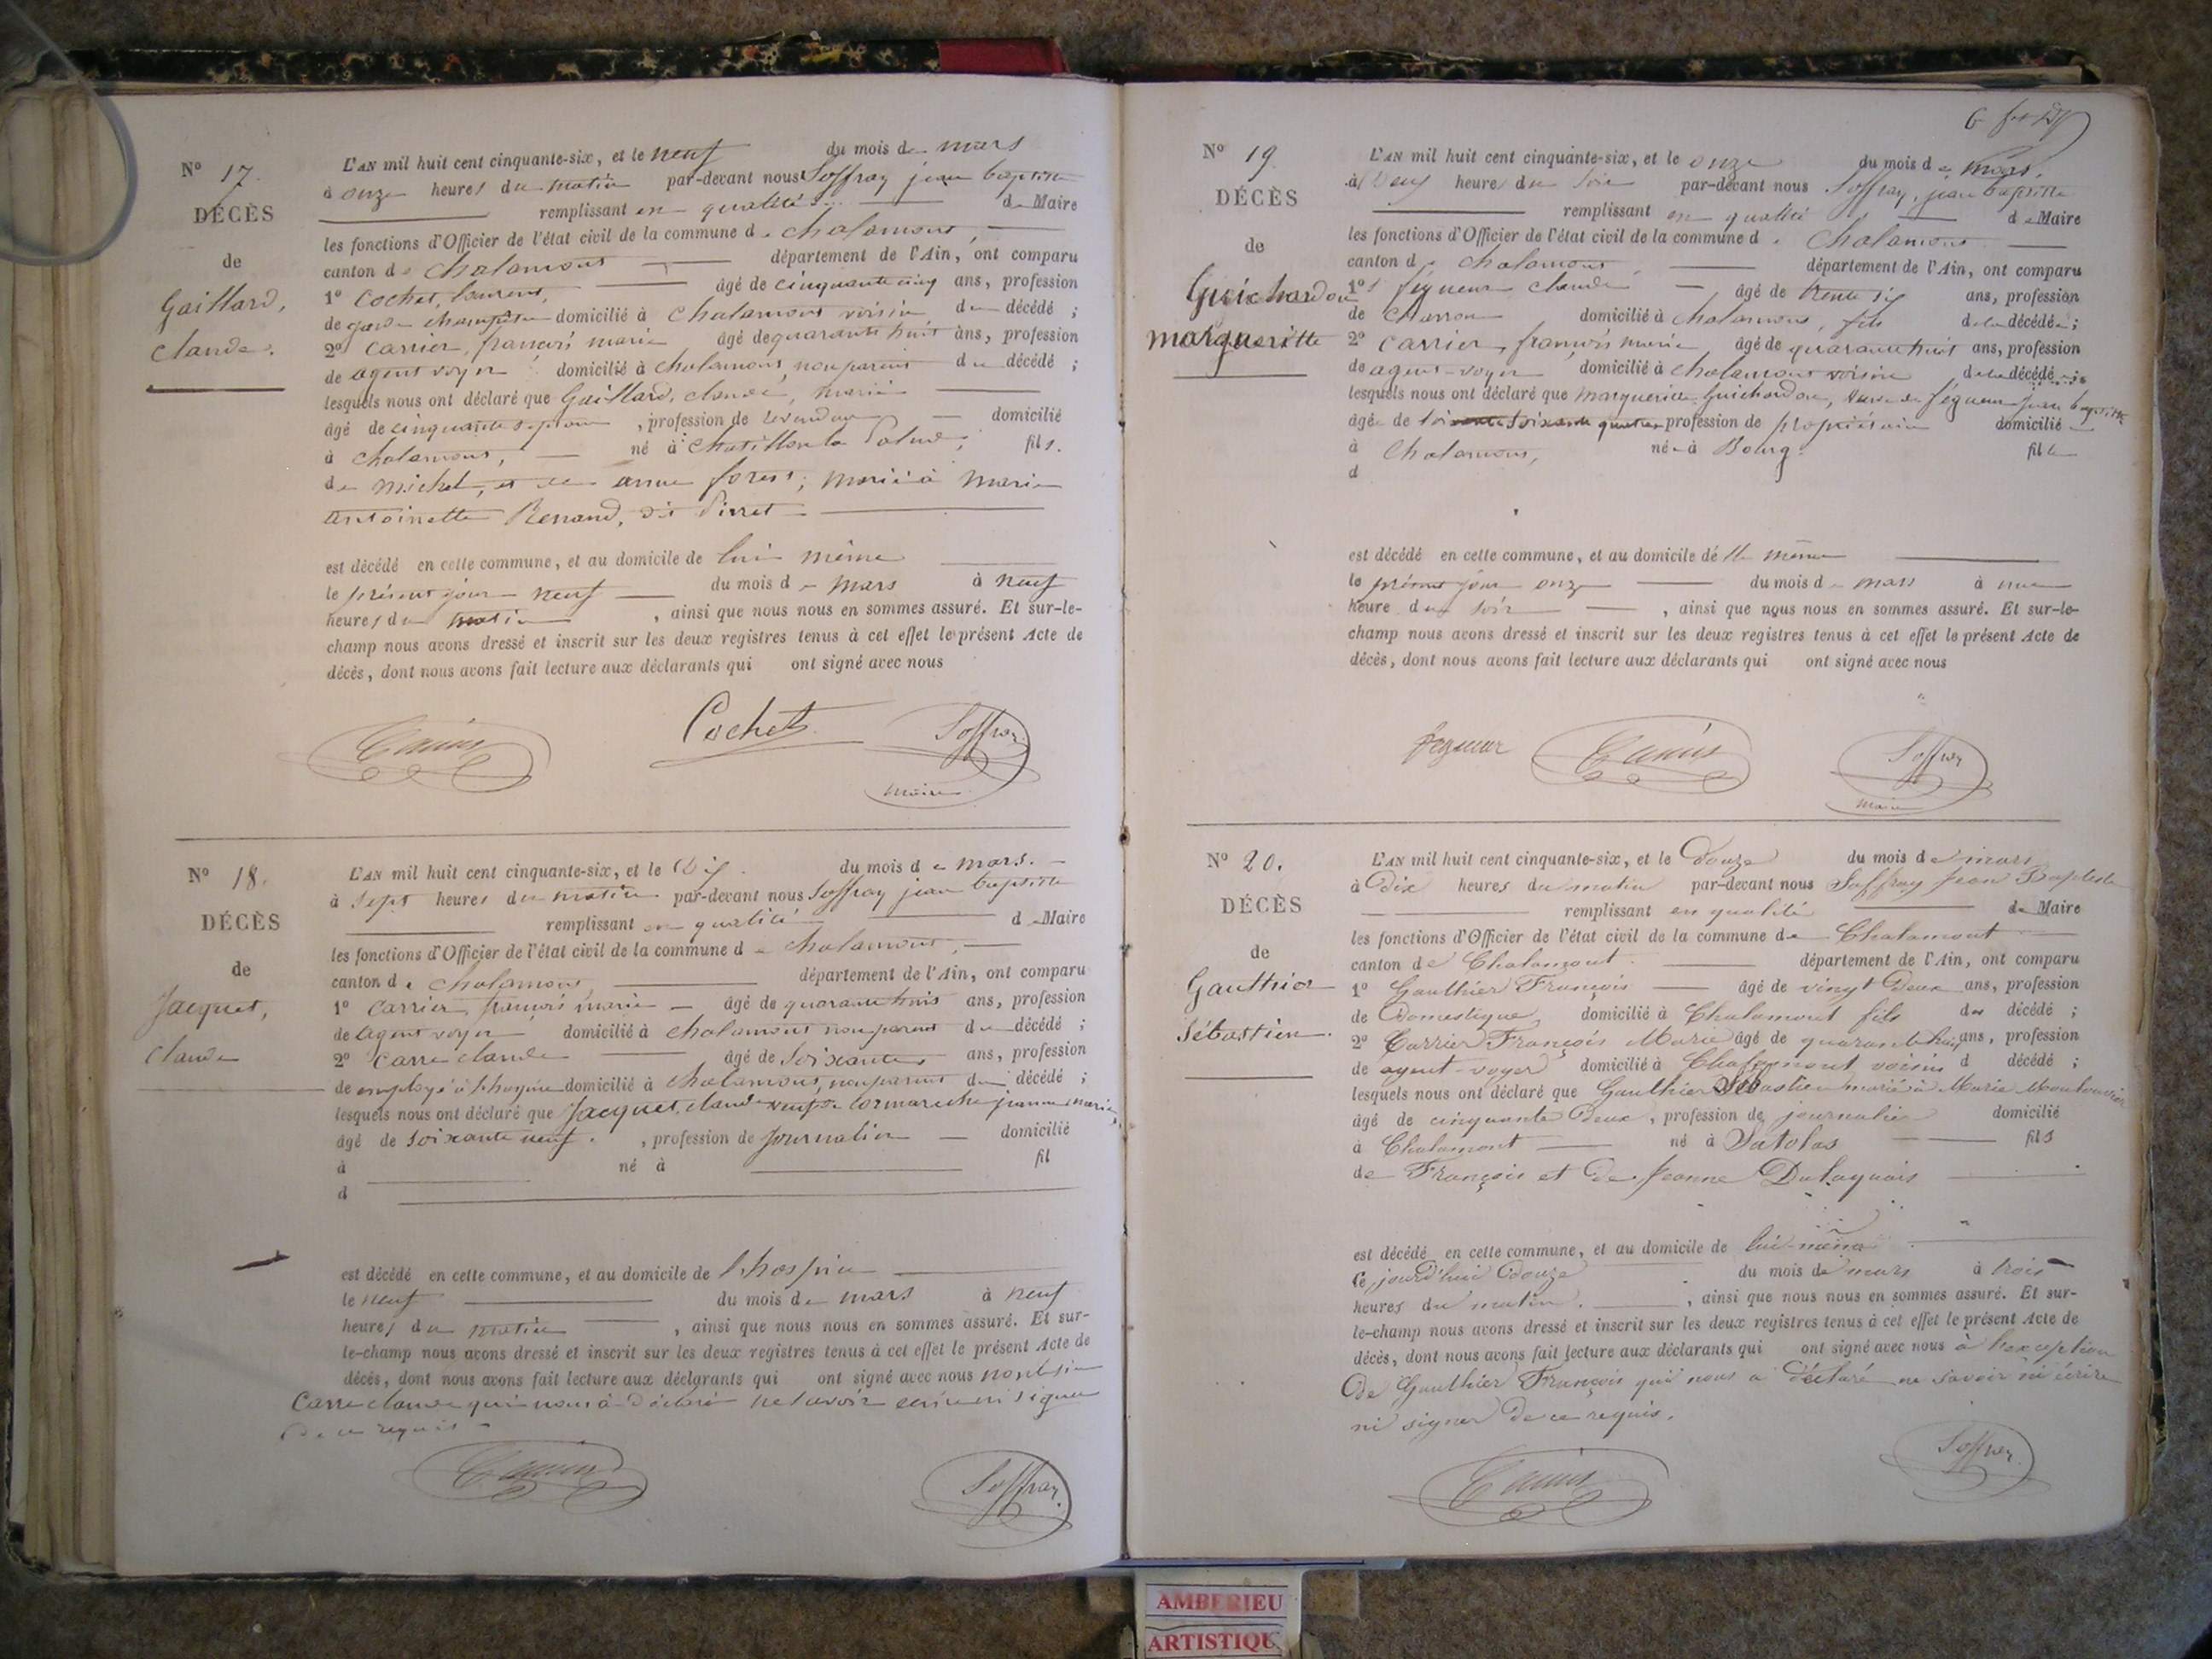 N° 17.
DÉCÈS
de
Gaillard,
Claude.
L'AN mil huit cent cinquante-six, et le neuf du mois de mars
à onze heures du matin par-devant nous Soffray jean baptiste
remplissant en qualité de Maire
les fonctions d'Officier de l'état civil de la commune de chalamont,
canton de chalamont département de l'Ain, ont comparu
1° Cochet, laurent, âgé de cinquante cinq ans, profession
de garde champêtre domicilié à Chalamont voisin du décédé ;
2° Carrier, françois marie âgé de quarante huit ans, profession
de agent voyer domicilié à chalamont, non parent du décédé ;
lesquels nous ont déclaré que Gaillard, claude, marié
âgé de cinquante sept ans, profession de domicilié
à chalamont, né à Chatillon la Palud, fils.
de michel, et de anne forest ; marié à marie
antoinette Renand, dit Pirret
est décédé en cette commune, et au domicile de lui même
le présent jour neuf du mois de mars à neuf
heures du matin, ainsi que nous nous en sommes assuré. Et sur-le-
champ nous avons dressé et inscrit sur les deux registres tenus à cet effet le présent Acte de
décès, dont nous avons fait lecture aux déclarants qui ont signé avec nous
Carrier Cochet Soffray
maire
N° 18.
DÉCÈS
de
Jacquet,
Claude
L'AN mil huit cent cinquante-six, et le Dix du mois de mars.
à sept heures du matin par-devant nous Soffray jean baptiste
remplissant en qualité de Maire
les fonctions d'Officier de l'état civil de la commune de chalamont,
canton de chalamont département de l'Ain, ont comparu
1° Carrier, françois marie âgé de quarante huit ans, profession
de agent voyer domicilié à chalamont non parent du décédé ;
2° Carre claude âgé de soixante ans, profession
de employé à l'hospice domicilié à chalamont, non parent du décédé ;
lesquels nous ont déclaré que Jacquet, claude veuf de Cormareche jeanne marie,
âgé de soixante neuf, profession de journalier domicilié
à né à fil
d
est décédé en cette commune, et au domicile de l'hospice
le neuf du mois de mars à neuf
heures du matin, ainsi que nous nous en sommes assuré. Et sur-
le-champ nous avons dressé et inscrit sur les deux registres tenus à cet effet le présent Acte de
décès, dont nous avons fait lecture aux déclarants qui ont signé avec nous non le sieur
Carre claude qui nous à déclaré ne savoir écrire ni signer
de ce requis
Carrier Soffray
N° 19.
DÉCÈS
de
Guichardon
margueritte
L'AN mil huit cent cinquante-six, et le onze du mois de mars.
à Deux heures du soir par-devant nous Soffray, jean baptiste
remplissant en qualité de Maire
les fonctions d'Officier de l'état civil de la commune de Chalamont
canton de chalamont département de l'Ain, ont comparu
1° fégueux claude âgé de trente six ans, profession
de charron domicilié à chalamont, fils de la décédée ;
2° Carrier, françois marie âgé de quarante huit ans, profession
de agent-voyer domicilié à chalamont voisin de la décédée ;
lesquels nous ont déclaré que marguerite Guichardon, veuve de fégueux jean baptiste
âgée de soixante quatre profession de propriétaire domicilié
à Chalamont, née à Bourg. fille
d
est décédé en cette commune, et au domicile de elle même
le présent jour onze du mois de mars à une
heure du soir, ainsi que nous nous en sommes assuré. Et sur-le-
champ nous avons dressé et inscrit sur les deux registres tenus à cet effet le présent Acte de
décès, dont nous avons fait lecture aux déclarants qui ont signé avec nous
fegueux Carrier Soffray
maire
N° 20.
DÉCÈS
de
Gauthier
Sébastien.
L'AN mil huit cent cinquante-six, et le Douze du mois de mars
à Dix heures du matin par-devant nous Soffray Jean Baptiste
remplissant en qualité de Maire
les fonctions d'Officier de l'état civil de la commune de Chalamont
canton de Chalamont département de l'Ain, ont comparu
1° Gauthier François âgé de vingt Deux ans, profession
de Domestique domicilié à Chalamont fils du décédé ;
2° Carrier François Marie âgé de quarante huit ans, profession
de agent-voyer domicilié à Chalamont voisin d décédé ;
lesquels nous ont déclaré que Gauthier Sébastien marié à Marie
âgé de cinquante Deux, profession de journalier domicilié
à Chalamont né à Satolas fils
de François et de Jeanne Dulaquais
est décédé en cette commune, et au domicile de lui-même
ce jourd'hui Douze du mois de mars à trois
heures du matin., ainsi que nous nous en sommes assuré. Et sur-
le-champ nous avons dressé et inscrit sur les deux registres tenus à cet effet le présent Acte de
décès, dont nous avons fait lecture aux déclarants qui ont signé avec nous à l'exception
De Gauthier François qui nous a déclaré ne savoir ni écrire
ni signer De ce requis.
Carrier Soffray
AMBERIEU
ARTISTIQU